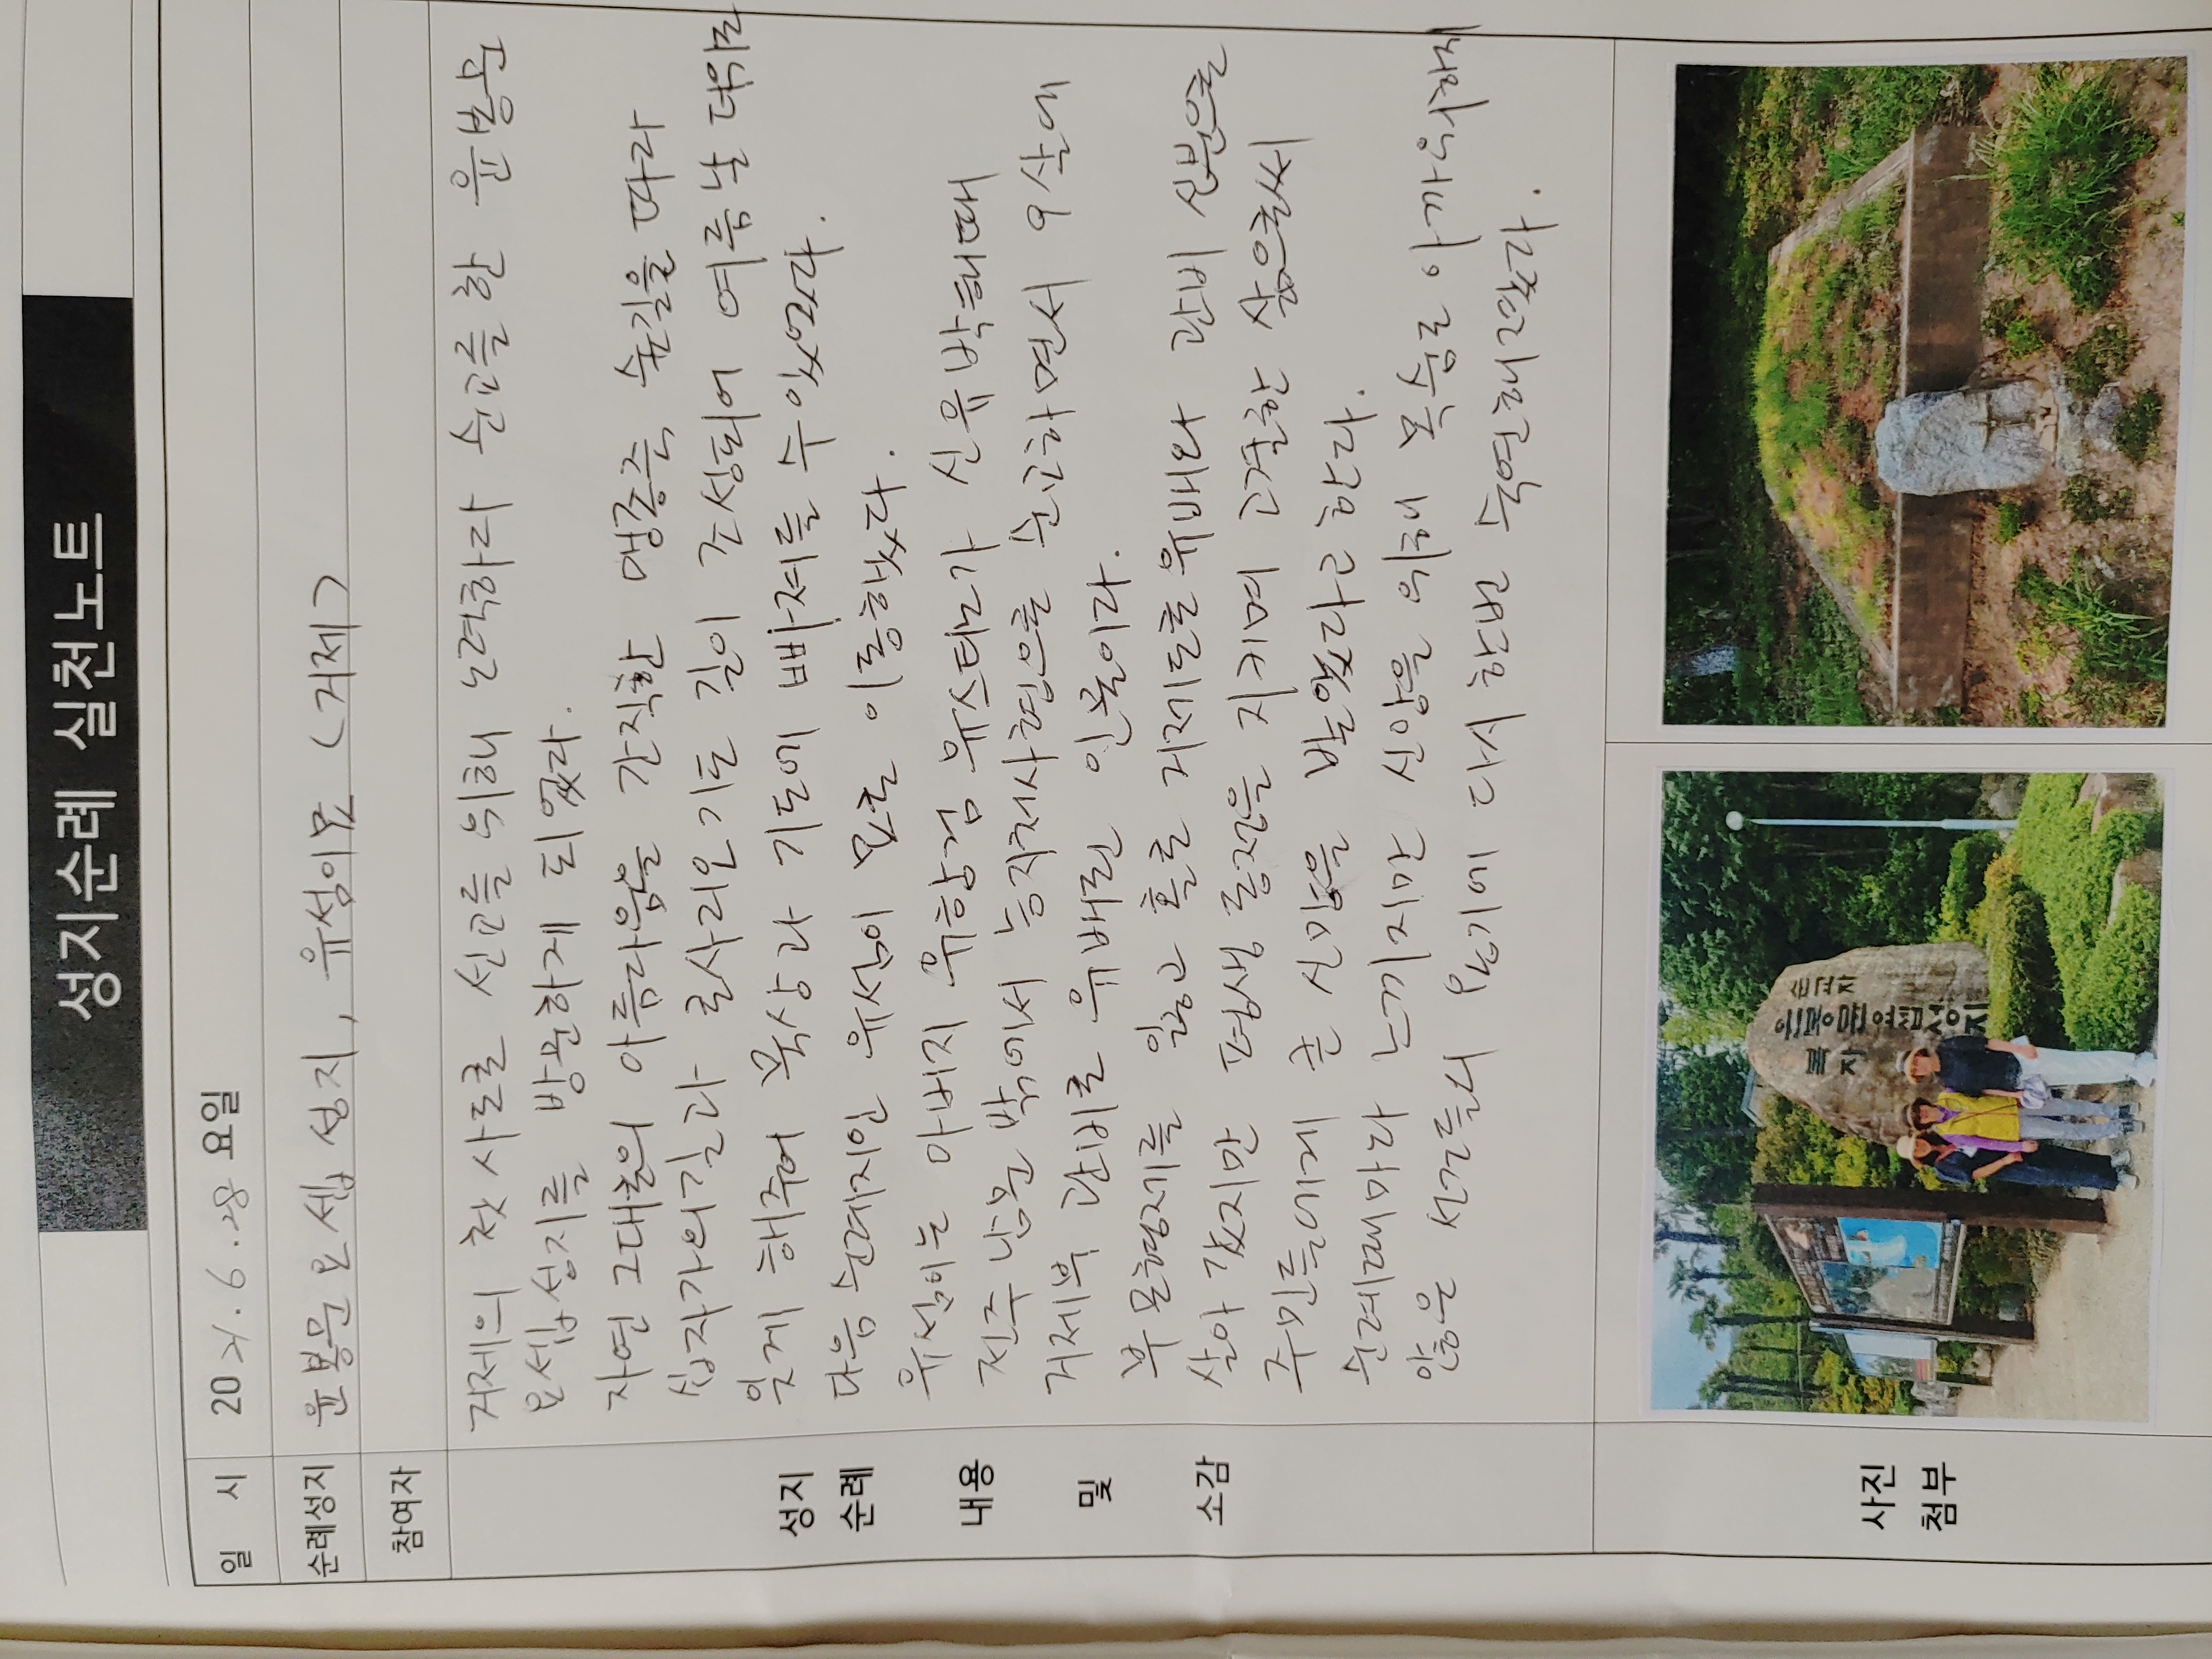 성지순례 실천노트
일 시 2021.6.28 요일
순례성지 윤봉문요셉 성지, 유섬이묘 (거제)
참여자
성지 순례 내용 및 소감
거제의 첫 사도로 선교를 위해 노력하다 순교를 한 윤봉문
요셉성지를 방문하게 되었다.
자연 그대로의 아름다움을 간직한 맹종죽 숲길을 따라
십자가의길과 로사리오기도 길이 조성되어 여름날 더위를
잊게 해주어 묵상과 기도에 빠져들 수 있었다.
다음 순례지인 유섬이 묘로 이동했다.
유섬이는 아버지 유항검 유스티노가 신유박해때
전주남문 밖에서 능지처사형으로 순교하면서 9살에
거제부 관비로 유배된 인물이다.
부모형제를 잃고 홀로 거제도로 유배와 관비 신분으로
살아 갔지만 평생 동정을 지키며 고결한 삶으로써
주민들에게 큰 신망을 받았다고 한다.
순례때마다 느끼지만 신앙을 위해 목숨도 아까워하지
않은 선조들의 용기에 다시 한번 숙연해졌다.
사진 첨부
순교자
윤봉문요셉성지
복자